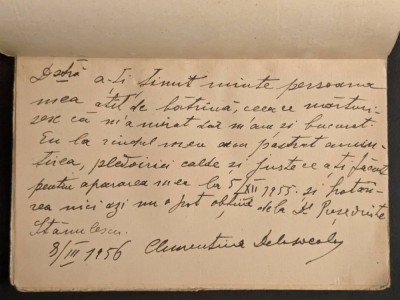 Dstră a-ți ținut minte persoana
mea atît de bătrînă, ceea ce mărturi-
sesc că m'a mirat dar m'a și bucurat.
Eu la rîndul meu am păstrat amin-
tirea, pledoiriei calde și juste ce ați făcut
pentru apararea mea la 5/XII 1955 și
nici azi nu a fost obținută de la Dl Președinte
Stanulescu.
3/III 1956 Clementina